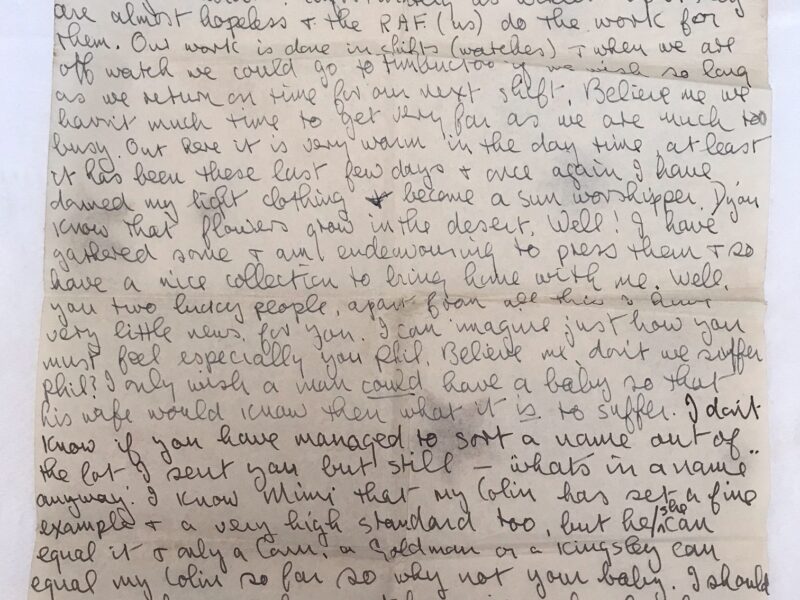 are almost hopeless & the R.A.F. (us) do the work for
them. Our work is done in shifts (watches) & when we are
off watch we could go to Timbuctoo if we wish so long
as we return on time for our next shift. Believe me we
havn't much time to get very far as we are much too
busy. Out here it is very warm in the day time at least
it has been these last few days & once again I have
donned my light clothing & become a sun worshipper. D'you
know that flowers grow in the desert. Well! I have
gathered some & am endeavouring to press them & so
have a nice collection to bring home with me. Well,
you two lucky people, apart from all this I have
very little news for you. I can imagine just how you
must feel especially you Phil. Believe me don't we suffer
Phil? I only wish a man could have a baby so that
his wife would know then what it is to suffer. I don't
know if you have managed to sort a name out of
the lot I sent you but still – "whats in a name"
anyway. I know Mimi that my Colin has set a fine
example & a very high standard too, but he/she can
equal it & only a Cann, a Goldman or a Kingsley can
equal my Colin so far so why not your baby. I should